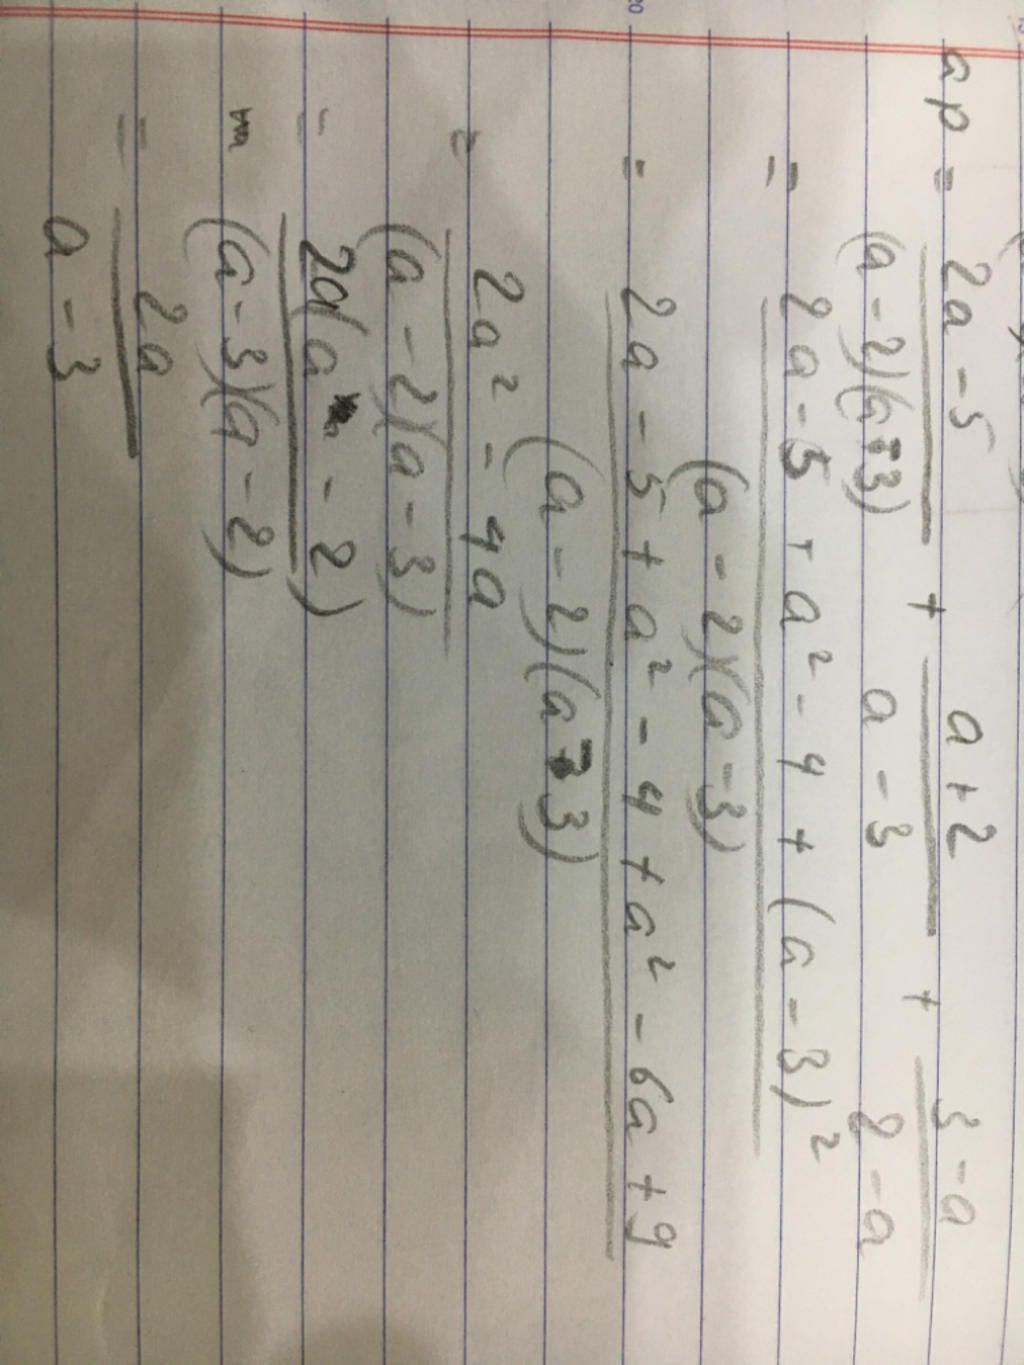 a p = 2a - 5 / (a - 2)(a - 3) + a + 2 / a - 3 + 3 - a / 2 - a
= 2a - 5 + a² - 4 + (a - 3)² / (a - 2)(a - 3)
= 2a - 5 + a² - 4 + a² - 6a + 9 / (a - 2)(a - 3)
= 2a² - 4a / (a - 2)(a - 3)
= 2a(a - 2) / (a - 3)(a - 2)
= 2a / a - 3